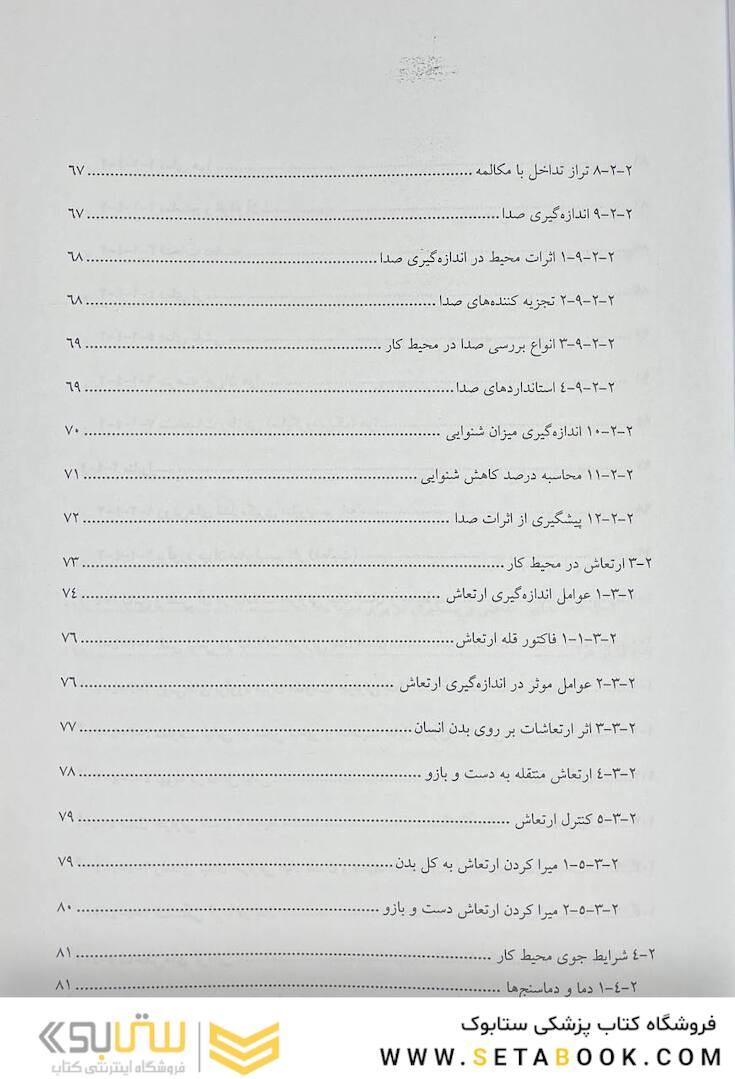 ۲-۲-۸ تراز تداخل با مکالمه ........ ۶۷
۲-۲-۹ اندازه‌گیری صدا ........ ۶۷
۲-۲-۹-۱ اثرات محیط در اندازه‌گیری صدا ........ ۶۸
۲-۲-۹-۲ تجزیه کننده‌های صدا ........ ۶۸
۲-۲-۹-۳ انواع بررسی صدا در محیط کار ........ ۶۹
۲-۲-۹-۴ استانداردهای صدا ........ ۶۹
۲-۲-۱۰ اندازه‌گیری میزان شنوایی ........ ۷۰
۲-۲-۱۱ محاسبه درصد کاهش شنوایی ........ ۷۱
۲-۲-۱۲ پیشگیری از اثرات صدا ........ ۷۲
۲-۳ ارتعاش در محیط کار ........ ۷۳
۲-۳-۱ عوامل اندازه‌گیری ارتعاش ........ ۷۴
۲-۳-۱-۱ فاکتور قله ارتعاش ........ ۷۶
۲-۳-۲ عوامل موثر در اندازه‌گیری ارتعاش ........ ۷۶
۲-۳-۳ اثر ارتعاشات بر روی بدن انسان ........ ۷۷
۲-۳-۴ ارتعاش منتقله به دست و بازو ........ ۷۸
۲-۳-۵ کنترل ارتعاش ........ ۷۹
۲-۳-۵-۱ میرا کردن ارتعاش به کل بدن ........ ۷۹
۲-۳-۵-۲ میرا کردن ارتعاش دست و بازو ........ ۸۰
۲-۴ شرایط جوی محیط کار ........ ۸۱
۲-۴-۱ دما و دماسنج‌ها ........ ۸۱
فروشگاه کتاب پزشکی ستابوک
WWW.SETABOOK.COM
ستابوک
فروشگاه اینترنتی کتاب